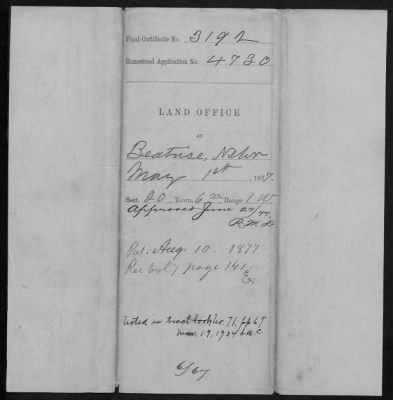 Final Certificate No. 3192
Homestead Application No. 4730
LAND OFFICE
at
Beatrice, Nebr
May 1st, 1877.
Sect. 20 Town. 6 Range 1 W
Approved June 27/77
Pat. Aug. 10. 1877
Rec Vol 7 page 141
Noted in tract book Vo. 71, pp 67
19, 1924
6/67